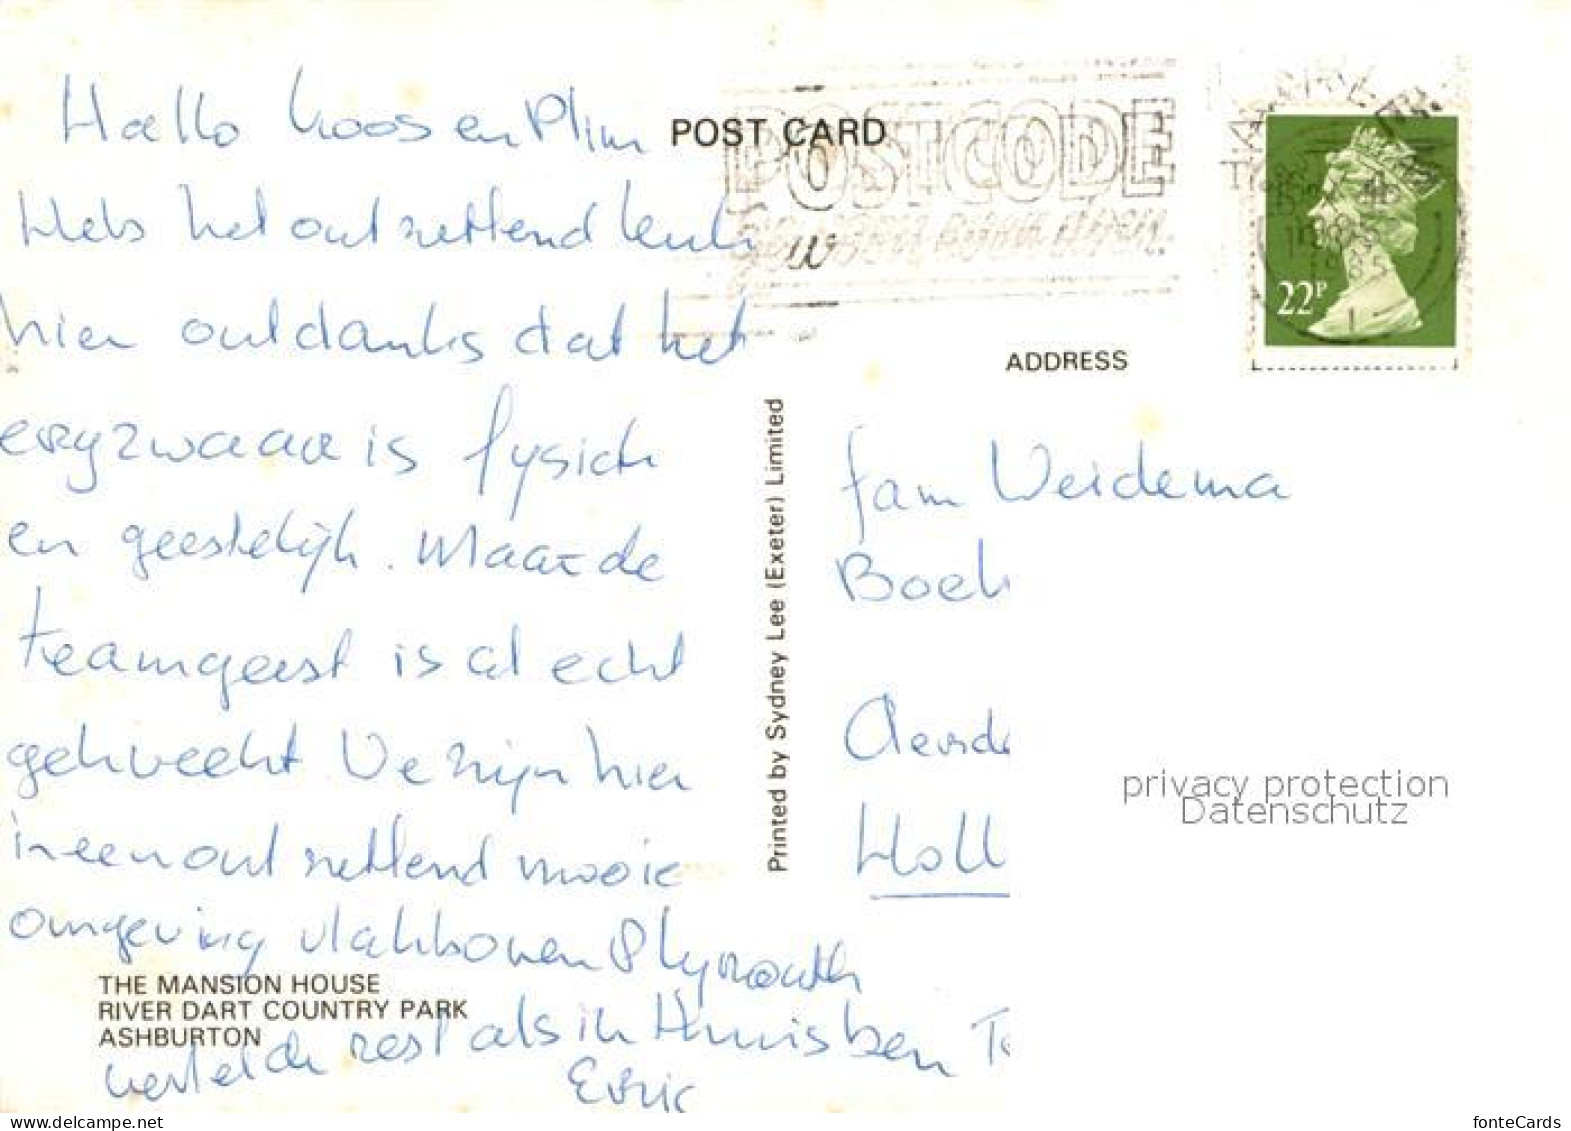 Hallo Koos en Plim
POST CARD
POSTCODE
Heb het ontzettend leuk
22P
1985
hier ondanks dat het
ADDRESS
erg zwaar is fysiek
fam Weidema
en geestelijk. Maar de
Boek
teamgeest is al echt
gekweekt. We zijn hier
in een ontzettend mooie
Holl
omgeving vlakboven Plymouth
vertel de rest als ik thuis ben
Printed by Sydney Lee (Exeter) Limited
THE MANSION HOUSE
RIVER DART COUNTRY PARK
ASHBURTON
privacy protection
Datenschutz
www.delcampe.net
fonteCards